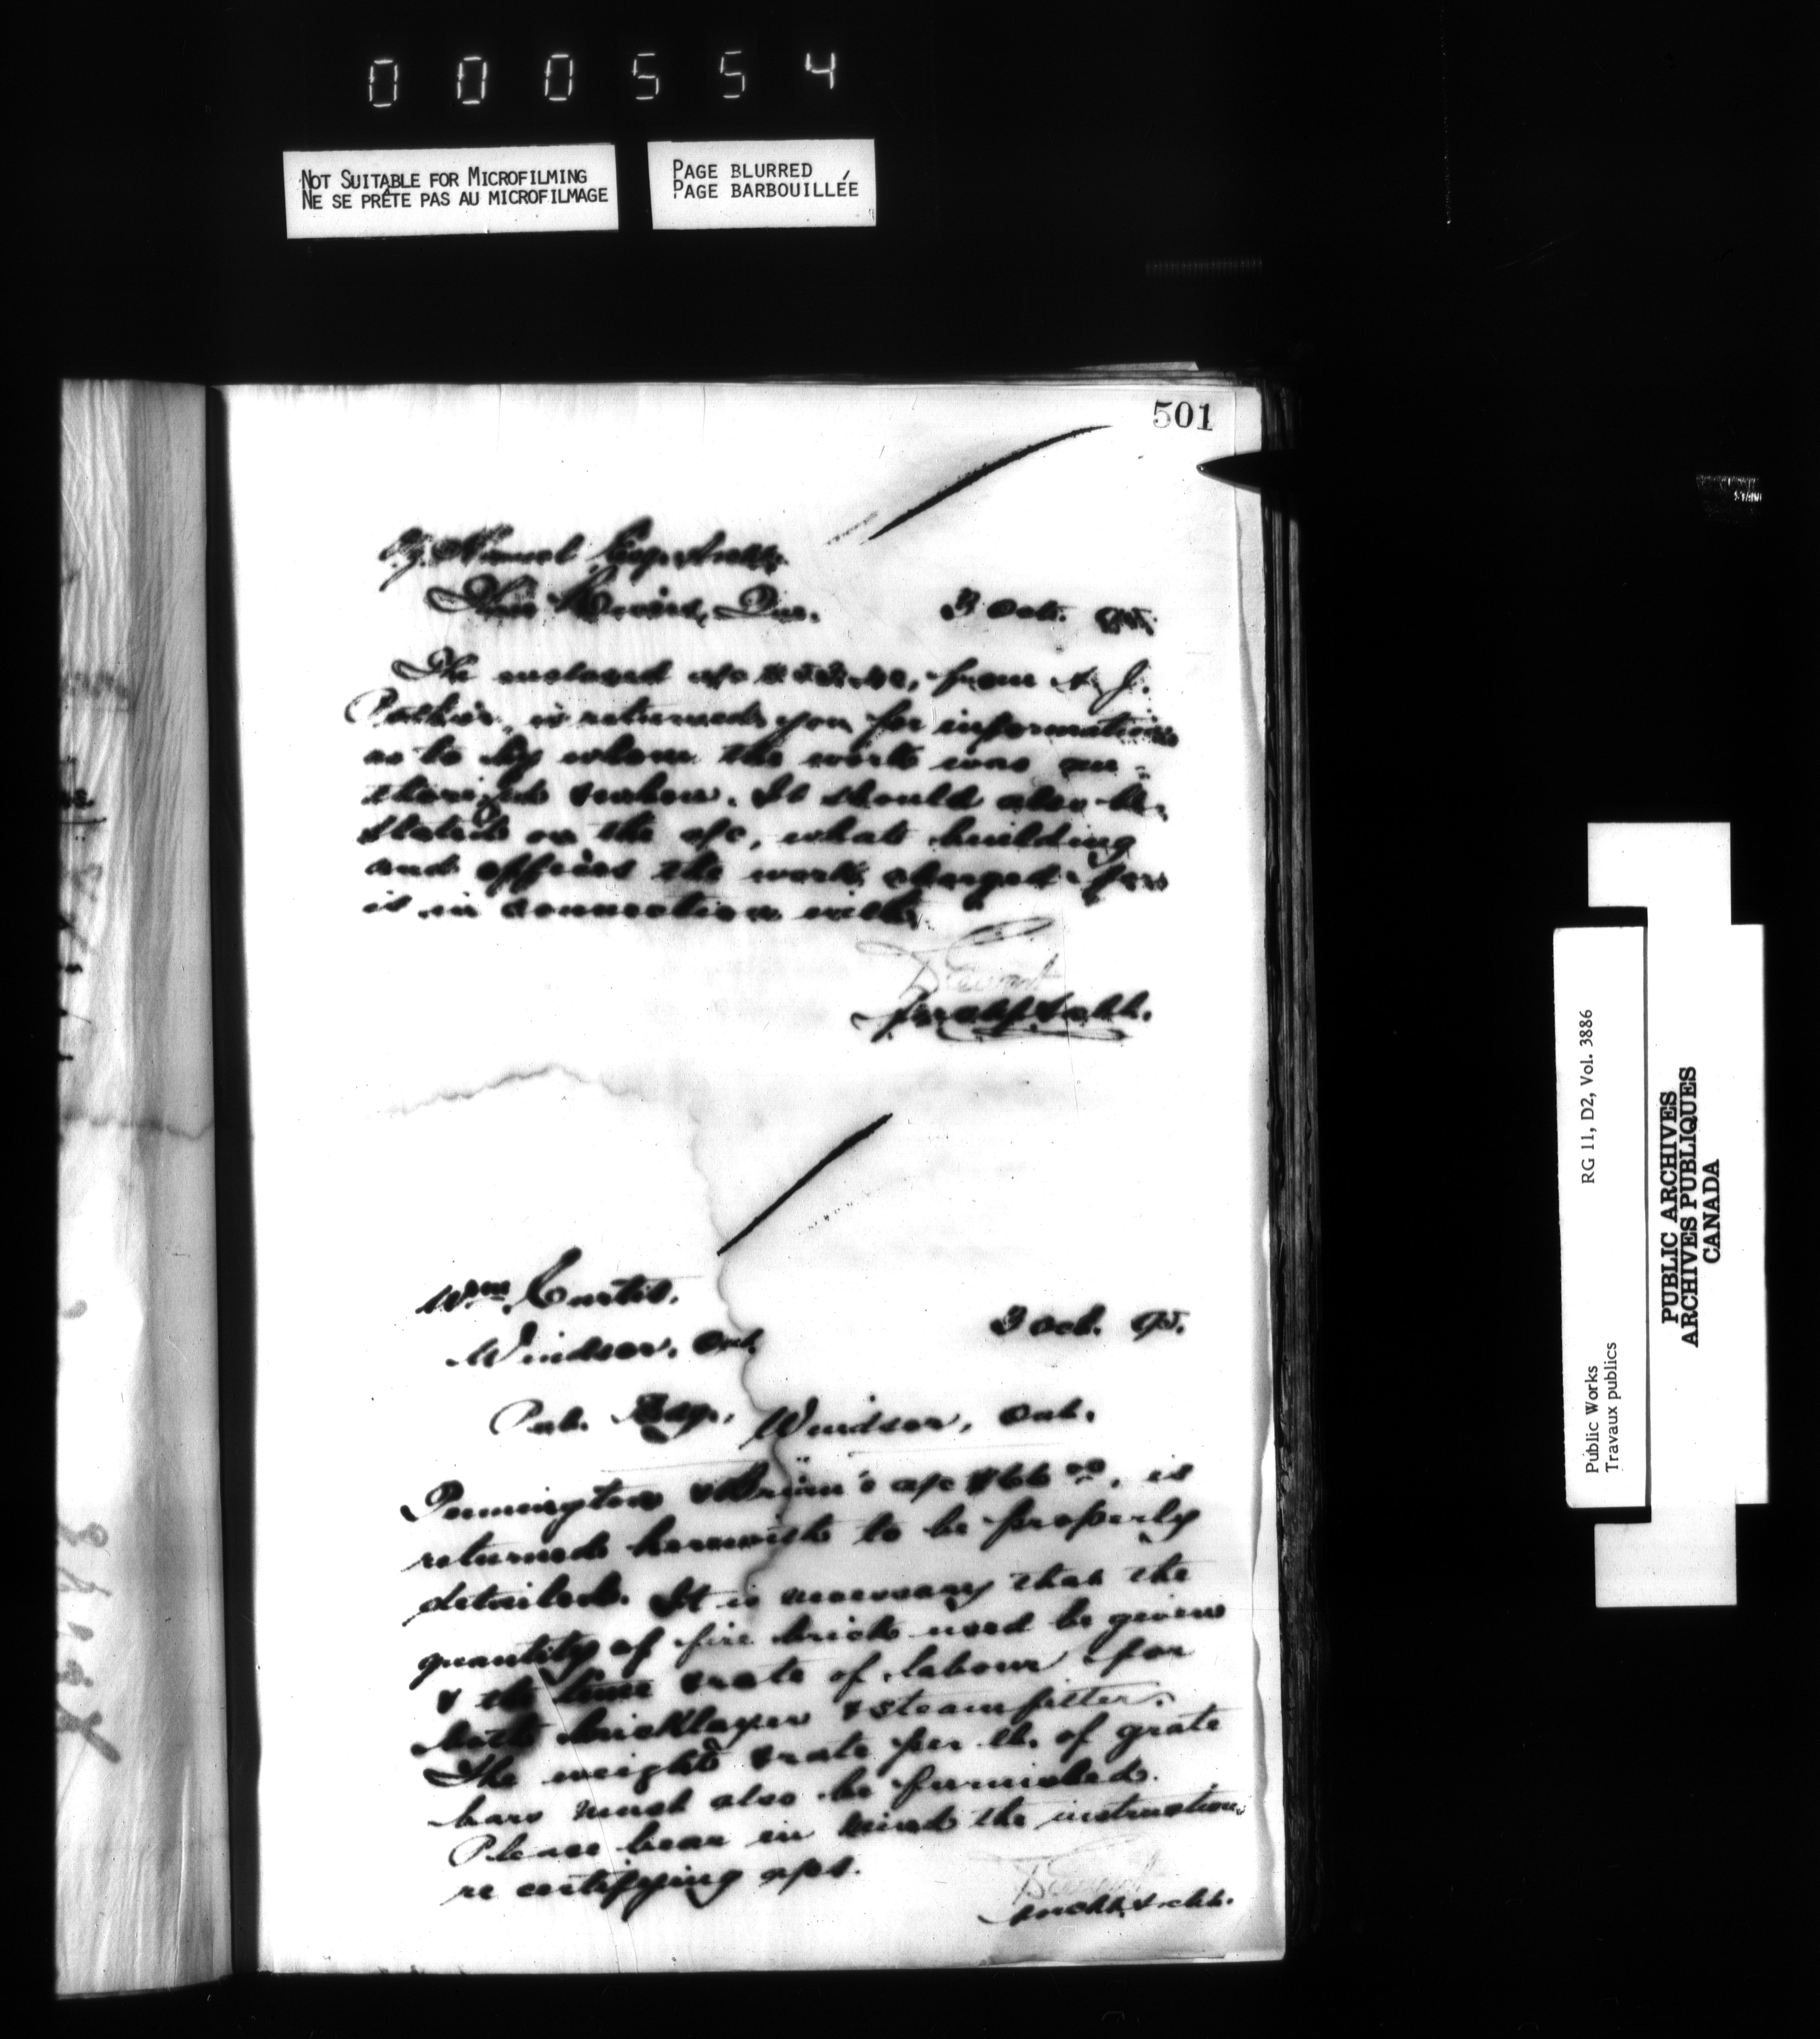 000554
NOT SUITABLE FOR MICROFILMING
NE SE PRÊTE PAS AU MICROFILMAGE
PAGE BLURRED
PAGE BARBOUILLÉE
501
Esq. Archt.
Que. 3 Oct. 95.
The enclosed a/c from
is returned you for information
as to by whom the work was au-
thorized &
It should also be
stated on the a/c, what building
and offices the work charged for
is in connection with
D Ewart
Archt.
Wm Curtis,
Windsor, Ont. 3 Oct. 95.
Pub. Bdg., Windsor, Ont.
Pennington & Brian's a/c $66 00, is
returned herewith to be properly
detailed. It is necessary that the
quantity of fire brick used be given
& the time & rate of labour for
both bricklayer & steamfitter.
The weight & rate per lb. of grate
bars must also be furnished.
Please bear in mind the instructions
re certifying a/cs.
D Ewart
Archt.
Public Works
Travaux publics
RG 11, D2, Vol. 3886
PUBLIC ARCHIVES
ARCHIVES PUBLIQUES
CANADA